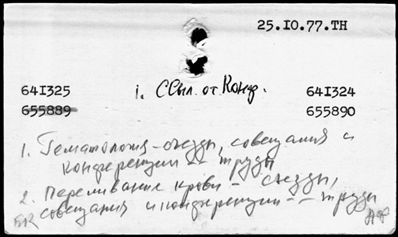 25.IO.77.TH
64I325 1. ССыл. от Конф. 64I324
655889 655890
1. Гематология - съезды, совещания и
конференции -- труды
2. Переливание крови - съезды,
совещания и конференции -- труды